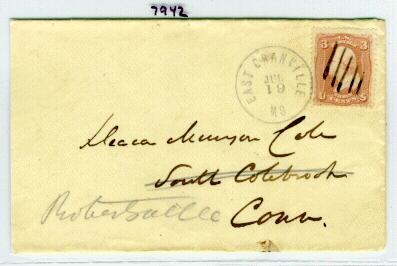 7942
EAST GRANVILLE
JUL
19
MS
3 3
U S
Munson
South Colebrook
Robertsville Conn.